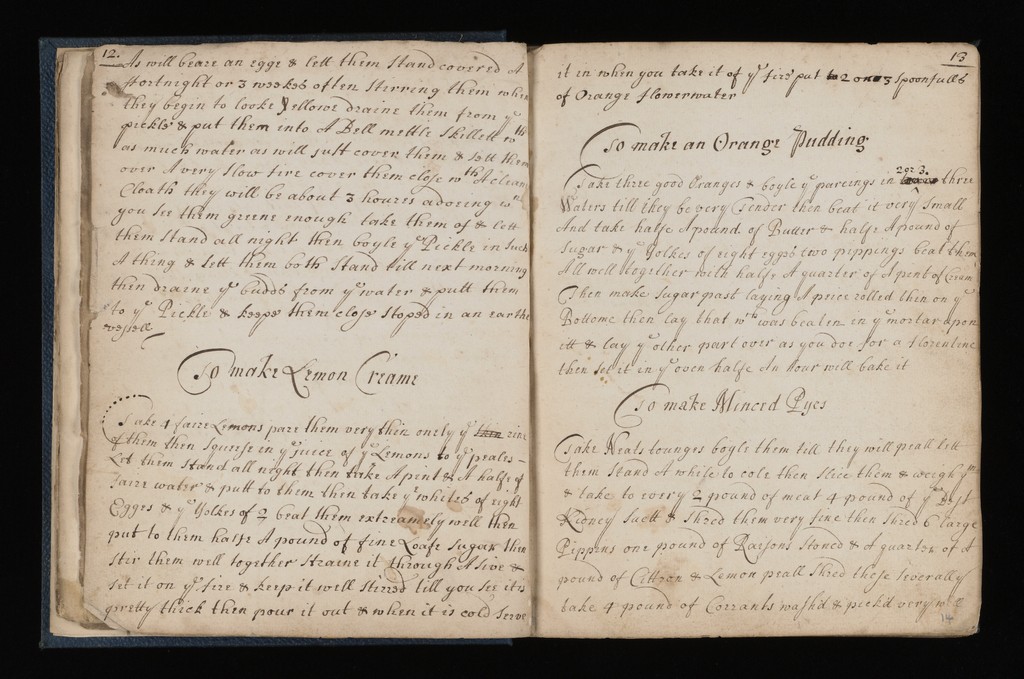 12.
As will beare an egge & lett them stand covered A
ffortnight or 3 weekes often stirring them when
they begin to looke yellowe draine them from ye
pickle & put them into A Bell mettle skillett wth
as much water as will just cover them & sett them
over A very slow fire cover them close wth A clean
Cloath they will be about 3 houres adoeing wn
you see them greene enough take them of & lett
them stand all night then boyle ye Pickle in such
A thing & lett them both stand till next morning
then draine ye budds from ye water & putt them
to ye Pickle & keepe them close stoped in an earthe
vessell
To make Lemon Creame
Take 4 faire Lemons pare them very thin onely ye thin rine
of them then squeese in ye juice of ye Lemons to ye peales
Let them stand all night then take A pint & A halfe of
Faire water & putt to them then take ye whites of eight
Egges & ye Yolkes of 2 beat them extreamely well then
put to them halfe A pound of fine Loafe sugar then
stir them well together straine it through A sive &
set it on ye fire & keep it well stirred till you see it is
pretty thick then pour it out & when it is cold serve
13
it in when you take it of ye fire put to 2 or 3 spoonfulls
of Orange flowerwater
To make an Orange Pudding
2 or 3.
Take three good Oranges & boyle ye pareings in three
Waters till they be very Tender then beat it very small
And take halfe A pound of Butter & halfe A pound of
sugar & ye Yolkes of eight eggs two pippings beat them
All well together with halfe A quarter of A pint of Cream
Then make sugar past laying A peice rolled thin on ye
Bottome then lay that wch was beaten in ye mortar upon
itt & lay ye other part over as you doe for a florentine
then set it in ye oven halfe An hour will bake it
To make Minced Pyes
Take Neats tounges boyle them till they will peall lett
them stand A while to cole then slice them & weigh ym
& take to every 2 pound of meat 4 pound of ye Best
Kidney suett & shred them very fine then shred 6 large
Pippens one pound of Raisons stoned & A quarter of A
pound of Cittron & Lemon peall shred these severally
take 4 pound of Corrants washd & pickd very well
14